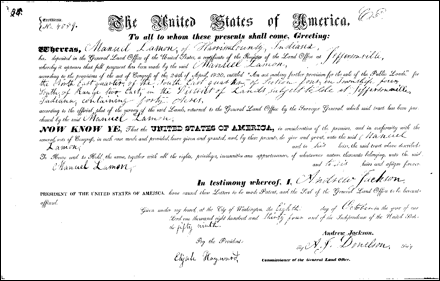 The United States of America.
To all to whom these presents shall come, Greeting:
Whereas, Manuel Lamon, of Harrison County, Indiana
has deposited in the General Land Office of the United States, a certificate of the Register of the Land Office at Jeffersonville
whereby it appears that full payment has been made by the said Manuel Lamon,
according to the provisions of the act of Congress of the 24th of April, 1820, entitled "An act making further provision for the sale of the Public Lands," for
the North East quarter of the South East quarter of Section one, in Township four
South, of Range two East, in the District of Lands subject to sale at Jeffersonville,
Indiana, containing forty acres.
according to the official plat of the survey of the said Lands, returned to the General Land Office by the Surveyor General, which said tract has been pur-
chased by the said Manuel Lamon,
NOW KNOW YE, That the UNITED STATES OF AMERICA, in consideration of the premises, and in conformity with the
several acts of Congress, in such case made and provided, have given and granted, and, by these presents, do give and grant, unto the said Manuel
Lamon, and to his heirs, the said tract above described:
To Have and to Hold the same, together with all the rights, privileges, immunities and appurtenances, of whatsoever nature thereunto belonging, unto the said
Manuel Lamon, and to his heirs and assigns forever.
In testimony whereof, I, Andrew Jackson
PRESIDENT OF THE UNITED STATES OF AMERICA, have caused these Letters to be made Patent, and the Seal of the General Land Office to be hereunto
affixed.
Given under my hand at the City of Washington the Eighth day of October in the year of our
Lord one thousand eight hundred and thirty four and of the Independence of the United States
the fifty ninth
Andrew Jackson,
By the President:
By A. J. Donelson,
Elijah Hayward
Commissioner of the General Land Office.